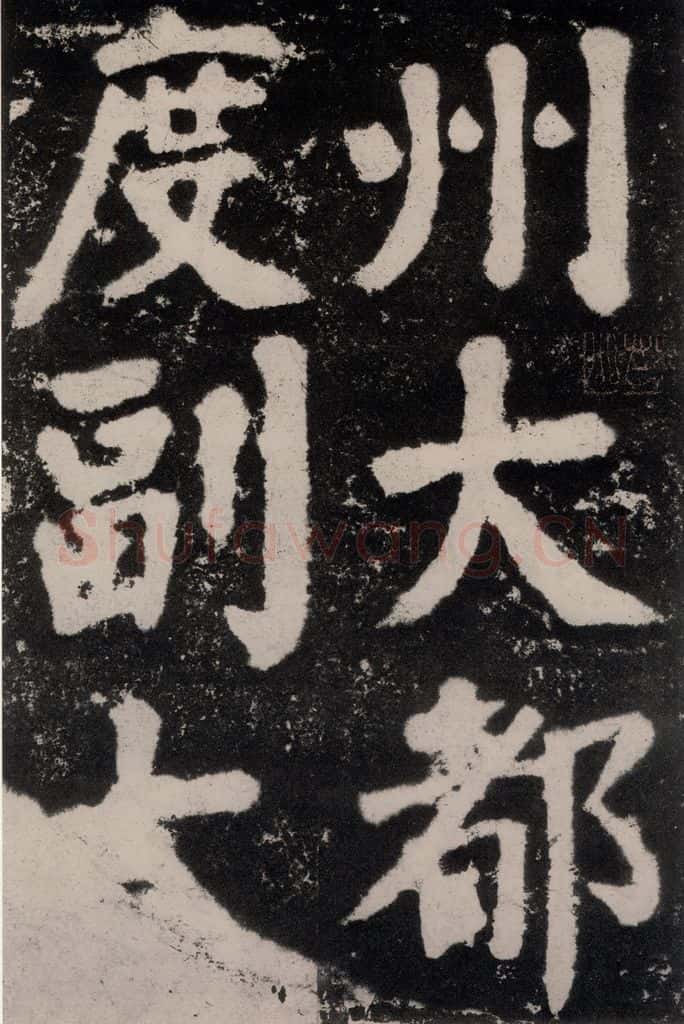 州大都
度副大
Shufawang.CN